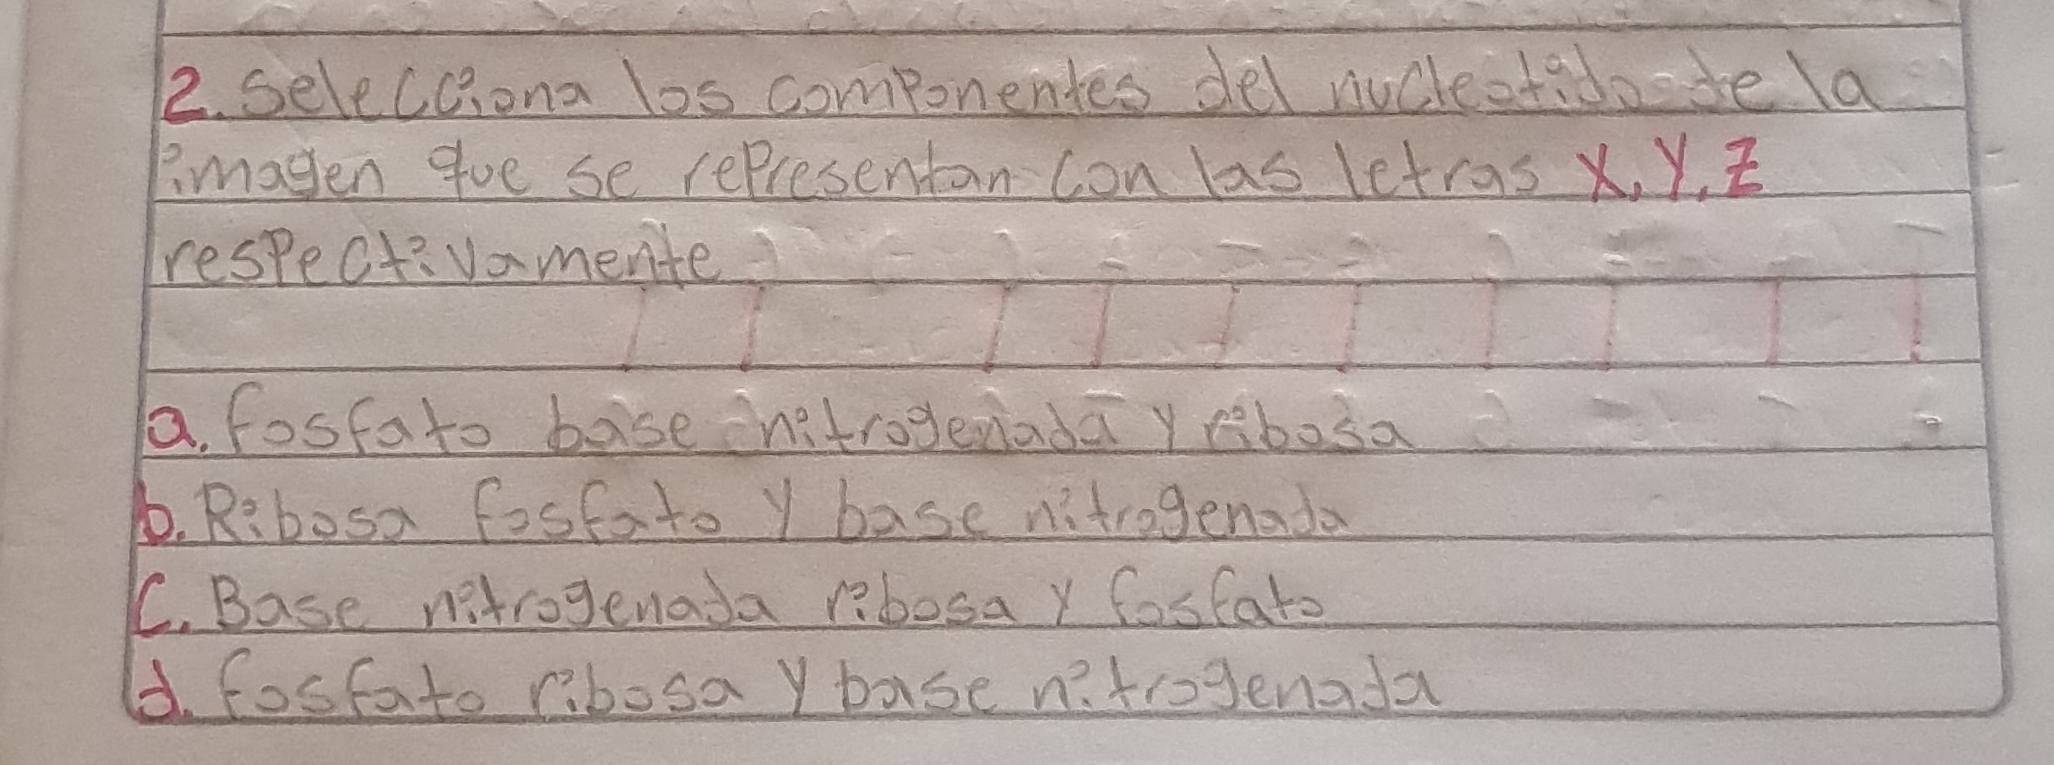 2. Selecciona los componentes del nucleotido de la
imagen que se representan con las letras X, Y, Z
respectivamente
a. fosfato base nitrogenada y ribosa
b. Ribosa fosfato y base nitrogenada
C. Base nitrogenada ribosa y fosfato
d. fosfato ribosa y base nitrogenada